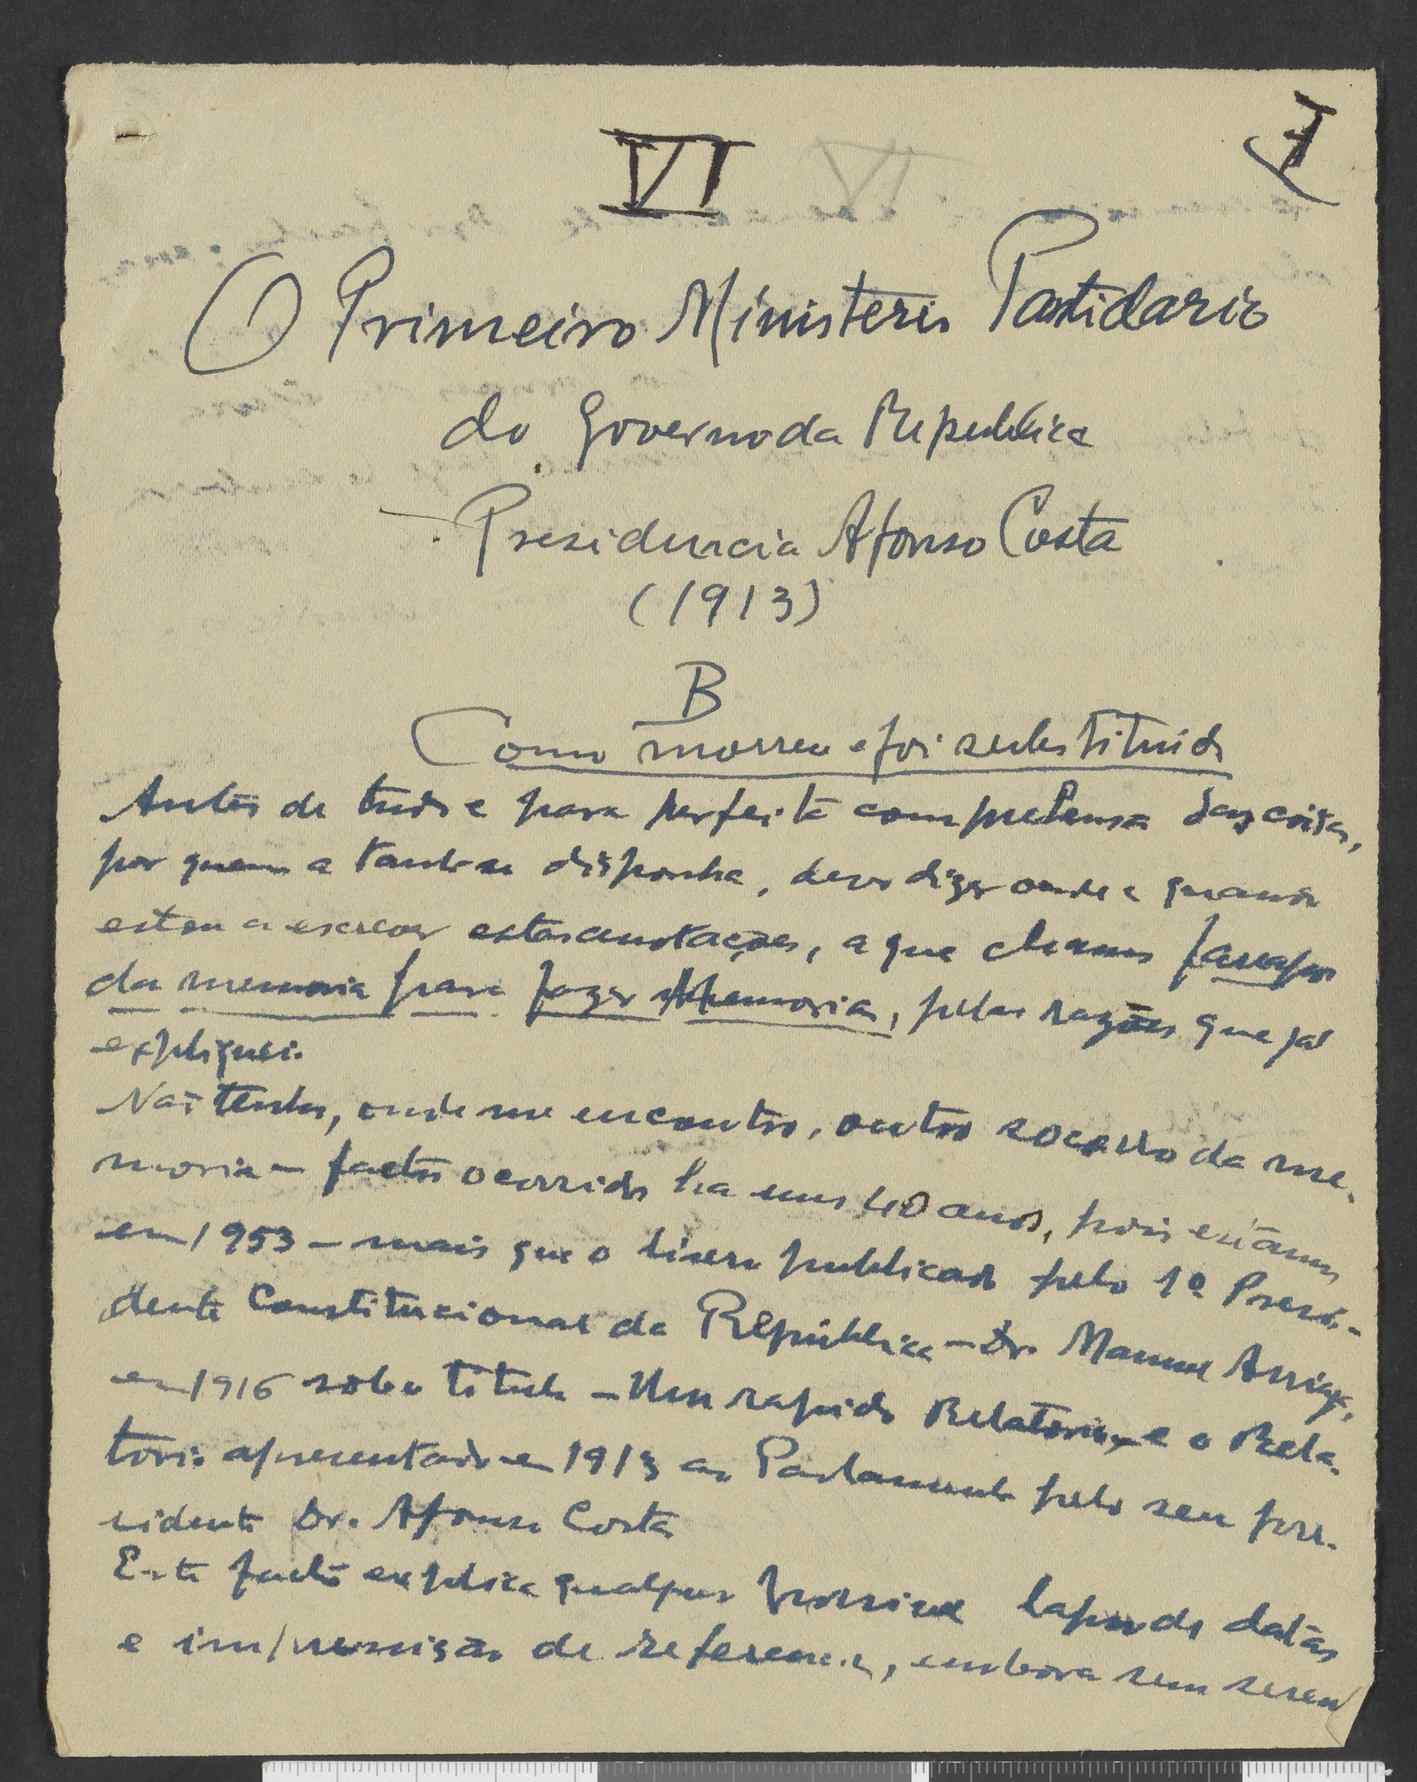 VI
I
O Primeiro Ministerio Partidario
do Governo da Republica
Presidencia Afonso Costa
(1913)
B
Como morreu e foi substituido
Antes de tudo e para perfeita compreensa das coisas,
por quem a tanto se disponha, devo dizer onde e quando
estou a escrever estas anotações, a que chamo farrapos
da memoria para fazer Memoria, pelas razões que já
expliquei.
Não tenho, onde me encontro, outro socorro da me-
moria - factos ocorridos ha uns 40 anos, pois estamos
em 1953 - mais que o livro publicado pelo 1º Presi-
dente Constitucional da Republica - Dr. Manuel Arriaga,
em 1916 sob o titulo - Um rapido Relatorio, e o Rela-
torio apresentado em 1913 ao Parlamento pelo seu pre-
sidente Dr. Afonso Costa
Este facto explica qualquer possivel lapso de datas
e imprecisão de referencia, embora sem serem